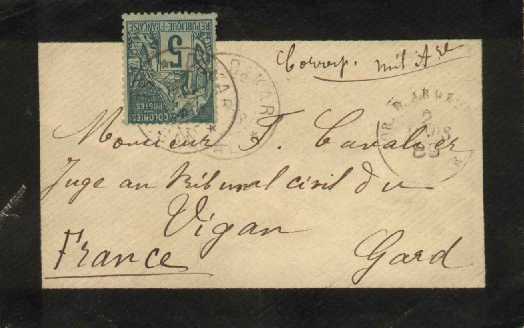 5
RÉPUBLIQUE FRANÇAISE
COLONIES
POSTES
DAKAR
Corresp. mil. Are
COR. D. ARMÉES
2
Monsieur F. Cavalier
Juge au Tribunal civil du
Vigan
France Gard